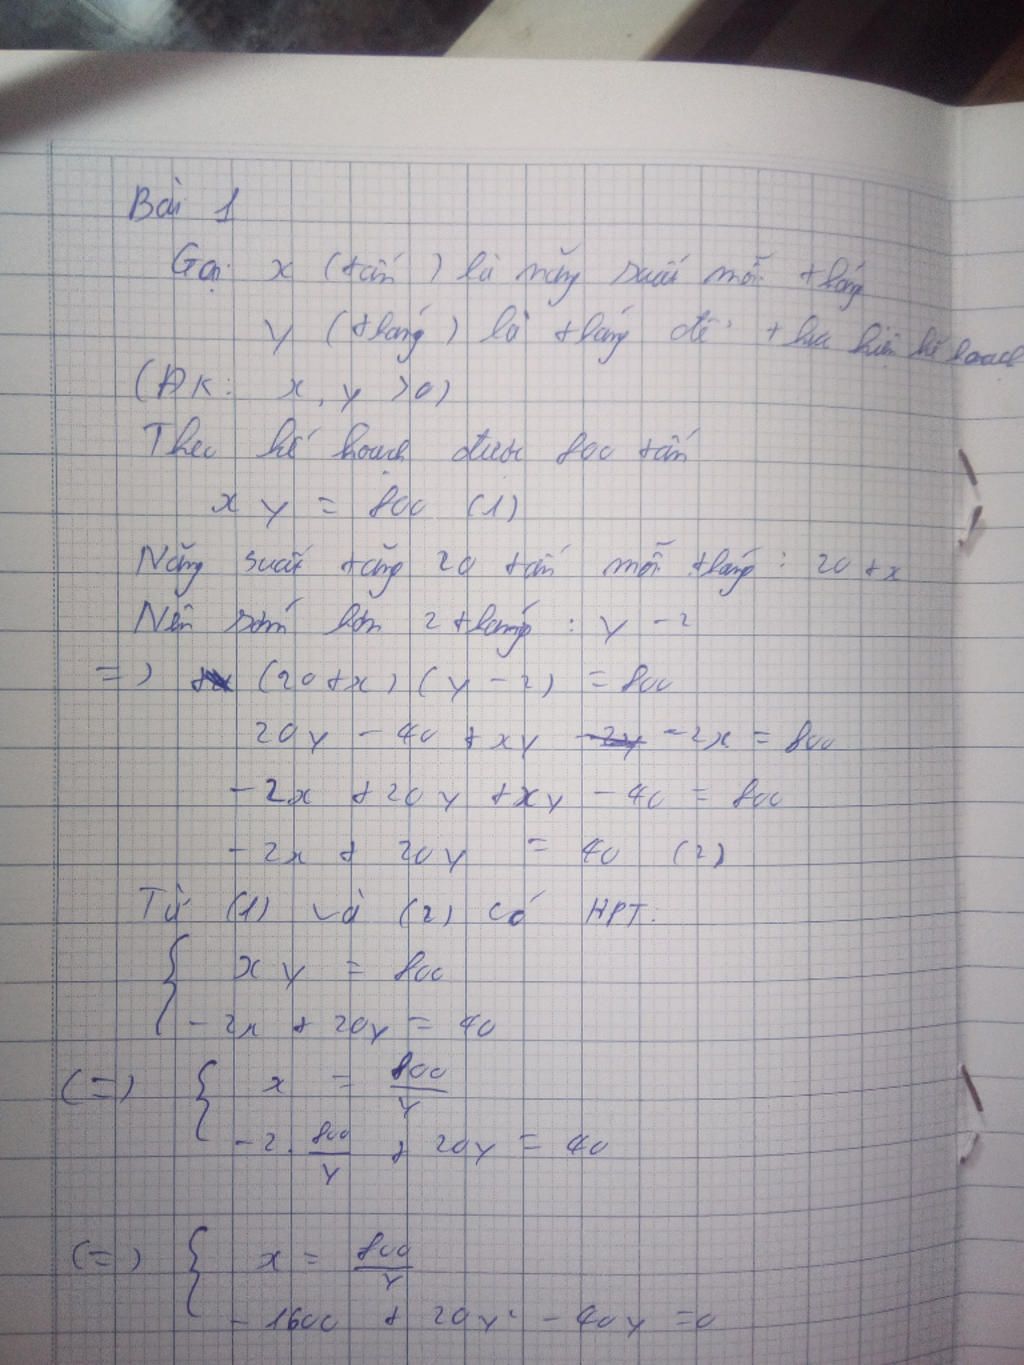 Bài 1
Gọi x (tấn) là năng suất mỗi tháng
y (tháng) là tháng để thực hiện kế hoạch
(ĐK: x, y >0)
Theo kế hoạch được 800 tấn
xy = 800 (1)
Năng suất tăng 20 tấn mỗi tháng : 20 + x
Nên sớm hơn 2 tháng : y - 2
=) (20 + x) (y - 2) = 800
20y - 40 + xy - 2y - 2x = 800
- 2x + 20y + xy - 40 = 800
- 2x + 20y = 40 (2)
Từ (1) và (2) có HPT:
{ xy = 800
- 2x + 20y = 40
(=) { x = 800/y
- 2. 800/y + 20y = 40
(=) { x = 800/y
- 1600 + 20y² - 40y = 0